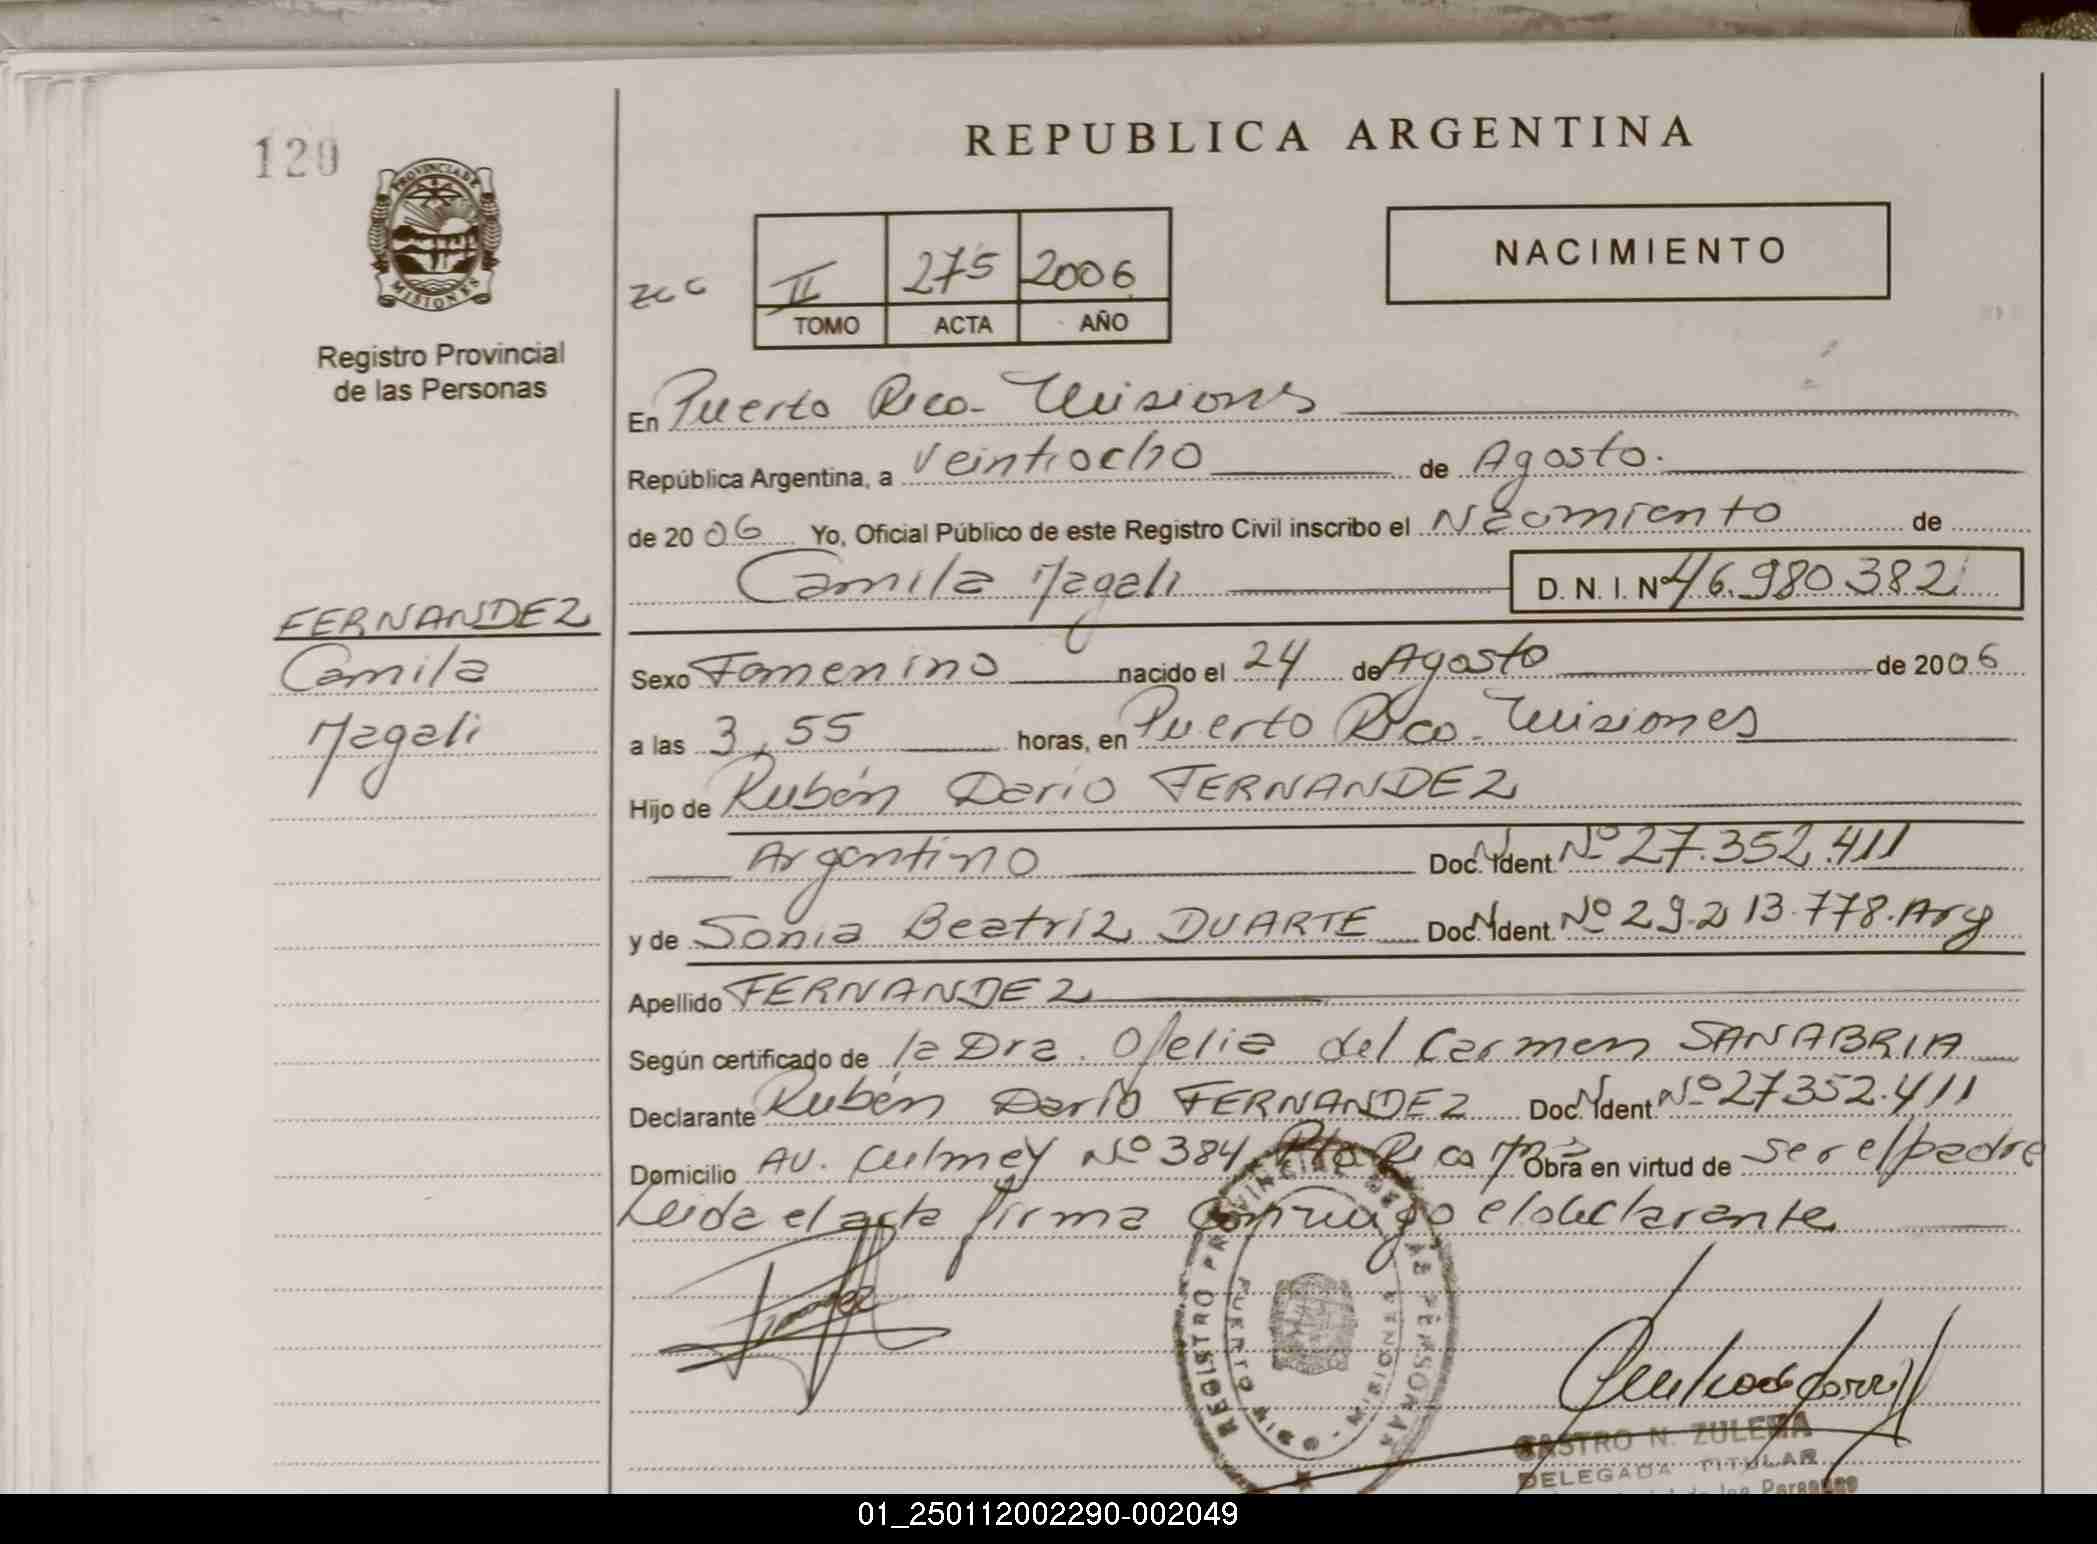 REPUBLICA ARGENTINA
120
PROVINCIA DE MISIONES
Registro Provincial
de las Personas
II 275 2006
TOMO ACTA AÑO
NACIMIENTO
En Puerto Rico - Misiones
República Argentina, a Veintiocho de Agosto.
de 2006 Yo, Oficial Público de este Registro Civil inscribo el Nacimiento de
Camila Magali D. N. I. Nº 46.980.382
FERNANDEZ
Camila
Magali
Sexo Femenino nacido el 24 de Agosto de 2006
a las 3,55 horas, en Puerto Rico - Misiones
Hijo de Rubén Dario FERNANDEZ
Argentino Doc. N. Ident. Nº 27.352.411
y de Sonia Beatriz DUARTE Doc. N. Ident. Nº 29.213.778. Arg
Apellido FERNANDEZ
Según certificado de la Dra. Ofelia del Carmen SANABRIA
Declarante Rubén Darío FERNANDEZ Doc. N. Ident. Nº 27352.411
Domicilio AV. Culmey Nº 384 Pto Rico Mnes Obra en virtud de ser el padre
Leida el acta firma conmigo el declarante
REGISTRO PROVINCIAL DE LAS PERSONAS
PUERTO RICO - MISIONES
CASTRO N. ZULEMA
DELEGADA TITULAR
01_250112002290-002049